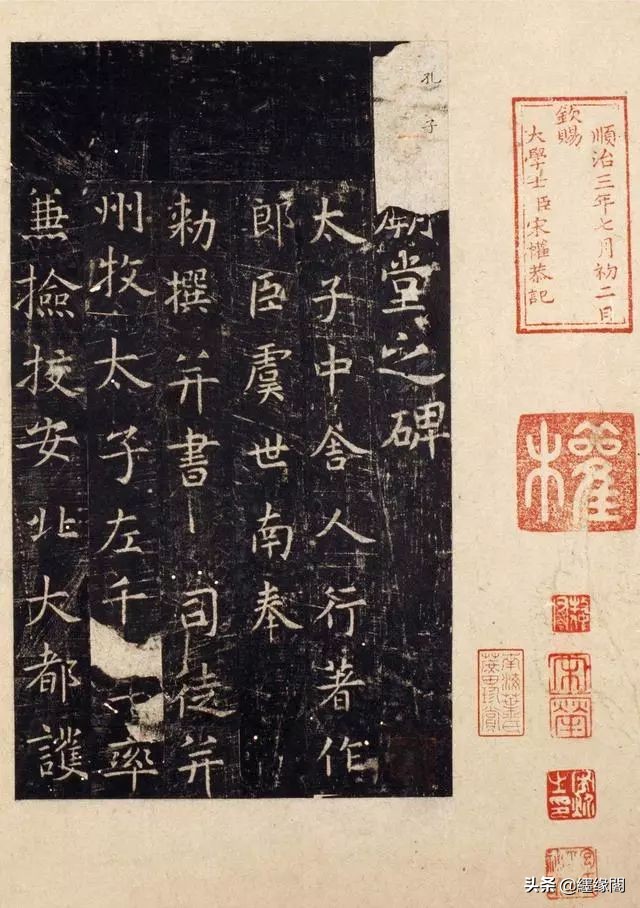 順治三年七月初二日
欽賜
大學士臣宋權恭記
權
孔子
廟堂之碑
太子中舍人行著作
郎臣虞世南奉
勅撰并書 司徒并
州牧太子左千 率
兼撿挍安北大都護
宋犖
头条 @緣閣